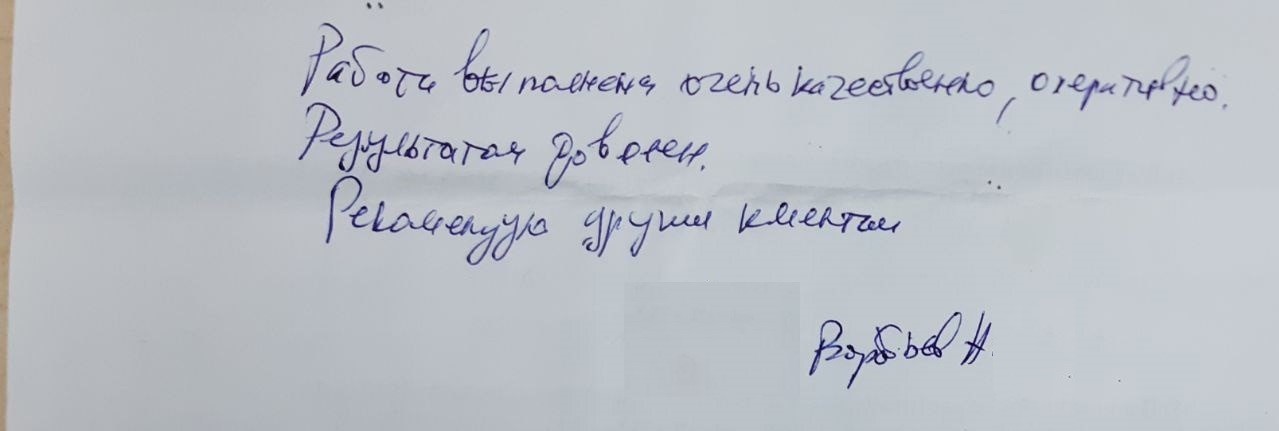 Работа выполнена очень качественно, оперативно.
Результатом доволен.
Рекомендую другим клиентам
Воробьев Н.